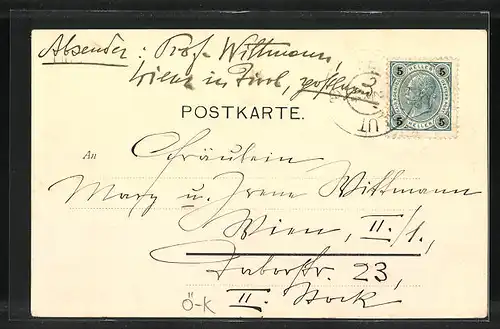 Absender: Prof. Wittmann,
in Tirol,
POSTKARTE.
An Fräulein
Mary u. Irene Wittmann
Wien, II./1.,
Taborstr. 23,
II. Stock
Ö-K
5 HELLER 5
5 HELLER 5